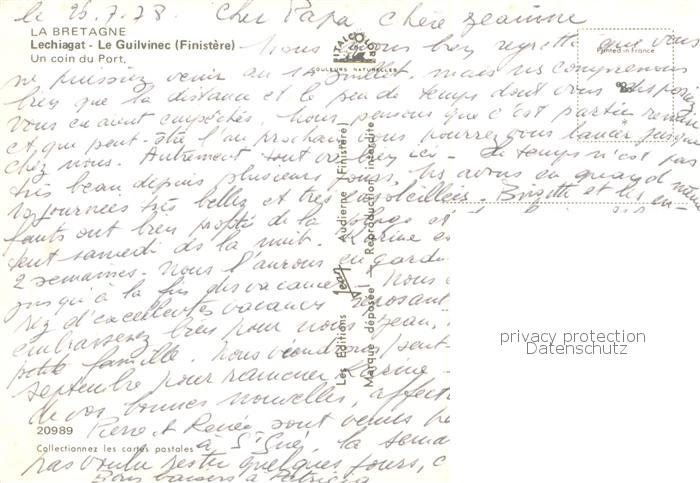 le 25.7.78. Cher Papa, chère Jeanine
LA BRETAGNE
Lechiagat - Le Guilvinec (Finistère)
Un coin du Port.
ITALCOLOR
COULEURS NATURELLES
Printed in France
Nous avons bien regretté que vous
ne puissiez venir au 14 Juillet, mais ns comprenons
bien que la distance et le peu de temps dont vous disposiez
vous en aient empêchés. Nous pensons que c'est partie remise
et que peut-être l'an prochain vous pourrez vous lancer jusque
chez nous. Autrement tout va bien ici - Le temps n'est pas
très beau depuis plusieurs jours, ns avons eu quand même
10 journées très belles et très ensoleillées. Brigitte et les en-
fants ont bien profité de la plage et
samedi ds la nuit. Karine es
2 semaines. Nous l'aurons en garde
jusqu'à la fin des vacances. Nous
d'excellentes vacances reposant
embrasserez bien pour nous Jean,
petite famille. Nous viendrons peut-
septembre pour ramener Karine -
de vos bonnes nouvelles, affect
20989 Pierre et Renée sont venus
Collectionnez les cartes postales à St Gué, la sema
pas voulu rester quelques jours, c
Bons baisers à Patricia
Les Editions Jean Audierne (Finistère)
Marque déposée Reproduction interdite
privacy protection
Datenschutz